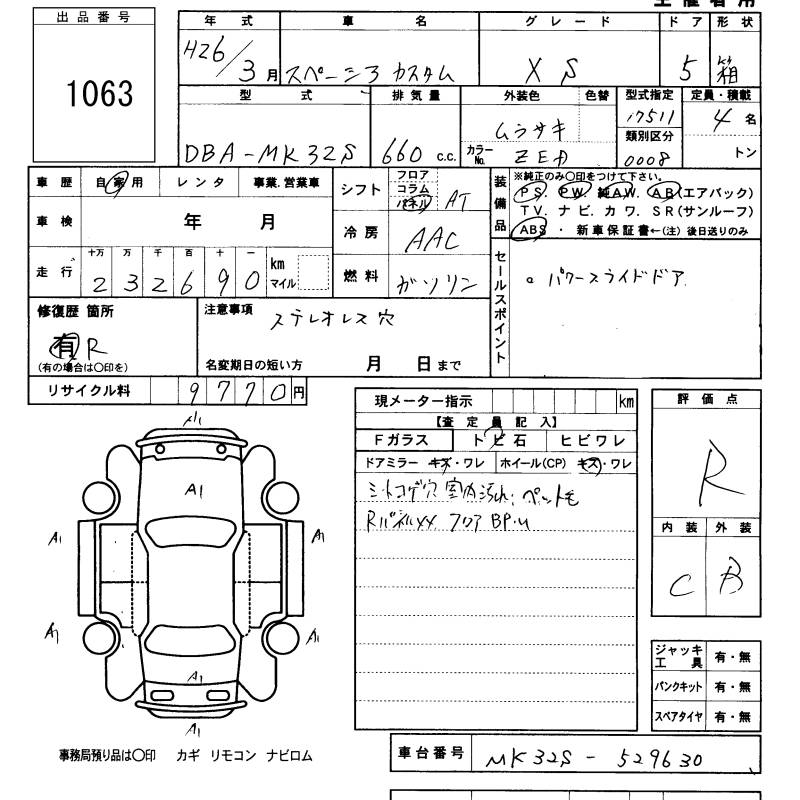 出品番号
1063
年式 車名 グレード ドア 形状
H26/3月 スペーシア カスタム XS 5 箱
型式 排気量 外装色 色替 型式指定 定員・積載
17511 4名
ムラサキ 類別区分
DBA-MK32S 660 c.c. カラーNo. ZEP 0008 トン
車歴 自家用 レンタ 事業.営業車
シフト フロア コラム パネル AT
装備品 ※純正のみ〇印をつけて下さい。
PS. PW. 純AW. AB(エアバック)
TV. ナビ. カワ. SR(サンルーフ)
ABS ・ 新車保証書←(注) 後日送りのみ
車検 年 月
冷房 AAC
走行 十万 万 千 百 十 一
232690 km マイル
燃料 ガソリン
セールスポイント
○ パワースライドドア
修復歴 箇所
有 R
(有の場合は〇印を)
注意事項 ステレオレス穴
名変期日の短い方 月 日まで
リサイクル料 9770円
現メーター指示 km
評価点
R
【査定員記入】
Fガラス トビ石 ヒビワレ
ドアミラー キズ・ワレ ホイール(CP) キズ・ワレ
シートコゲ穴 室内汚れ; ペット毛
Rパネルxx フロア BP.u
内装 外装
C B
A1
A1
A1 A1
A1 A1
A1
A1
ジャッキ工具 有・無
パンクキット 有・無
スペアタイヤ 有・無
事務局預り品は〇印 カギ リモコン ナビロム
車台番号 MK32S - 529630